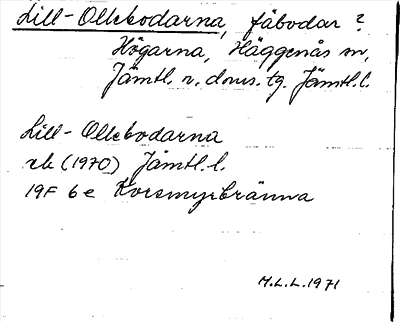 Lill-Ollebodarna, fäbodar?
Högarna, Häggenås sn,
Jämtl. n. doms. tg. Jämtl. l.
Lill-Ollebodarna
rk (1970) Jämtl. l.
19F 6e Korsmyrbränna
M.L.L. 1971